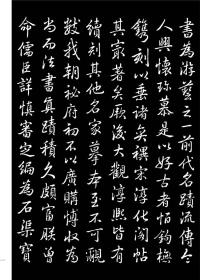 書為游藝之一前代名蹟流傳令
人興懷珍慕是以好古者恒鉤橅
鐫刻以垂諸奕禩宋淳化閣帖
其最著矣厥後大觀淳熙皆有
續刻其他名家摹本至不可殫
數我朝秘府初不以廣購博收為
尚而法書真蹟積久頗富朕曾
命儒臣詳慎審定編為石渠寶